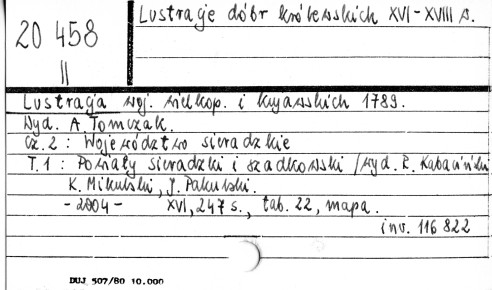 Lustracje dóbr królewskich XVI-XVIII w.
20 458
II
Lustracja woj. wielkop. i kujawskich 1789.
Wyd. A. Tomczak.
Cz. 2 : Województwo sieradzkie
T. 1 : Powiaty sieradzki i szadkowski / wyd. R. Kabaciński
K. Mikulski, J. Pakulski.
- 2004 - XVI, 247 s., tab. 22, mapa.
inv. 116 822
DUJ 507/80 10.000